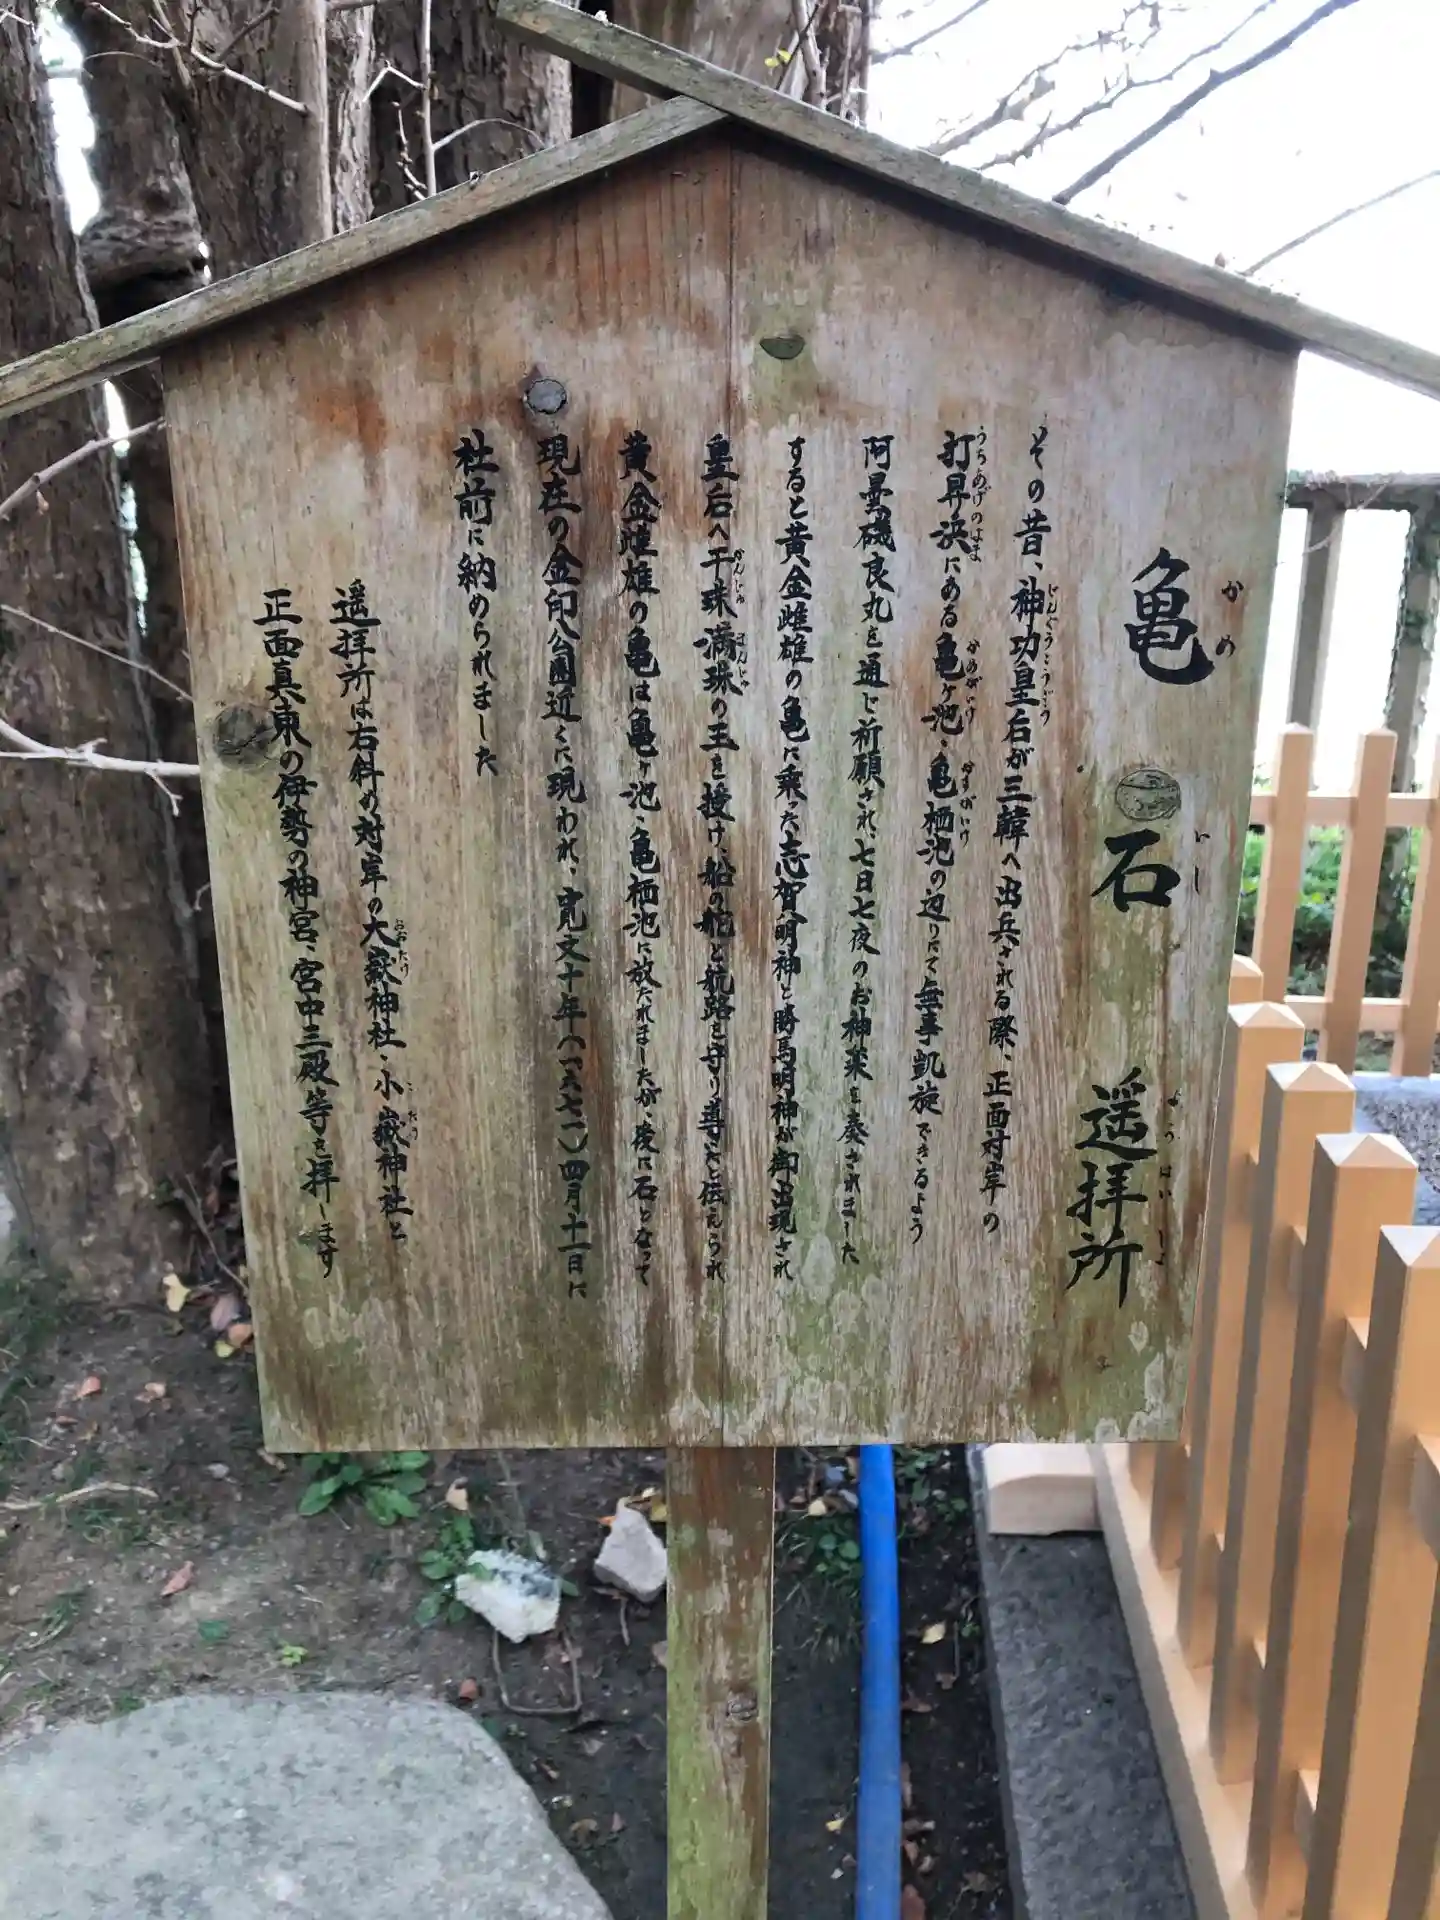 亀石 遥拝所
その昔、神功皇后が三韓へ出兵される際、正面対岸の
打昇浜にある亀ヶ池・亀栖池の辺りにて無事凱旋できるよう
阿曇磯良丸を通じ祈願され、七日七夜のお神楽を奏されました
すると黄金雌雄の亀に乗った志賀明神と勝馬明神が御出現され
皇后へ干珠満珠の玉を授け、船の舵と航路を守り導きと伝えられ
黄金雌雄の亀は亀ヶ池・亀栖池に放たれましたが、後に石となって
現在の金印公園近くに現われ、寛文十年(一六七一)四月十一日に
社前に納められました
遥拝所は右斜め対岸の大嶽神社・小嶽神社と
正面真東の伊勢の神宮、宮中三殿等を拝します
かめ
いし
ようはいしょ
じんぐうこうごう
うちあげのはま
かめがいけ
かめすいけ
かんじゅ
まんじゅ
おおたけ
こたけ